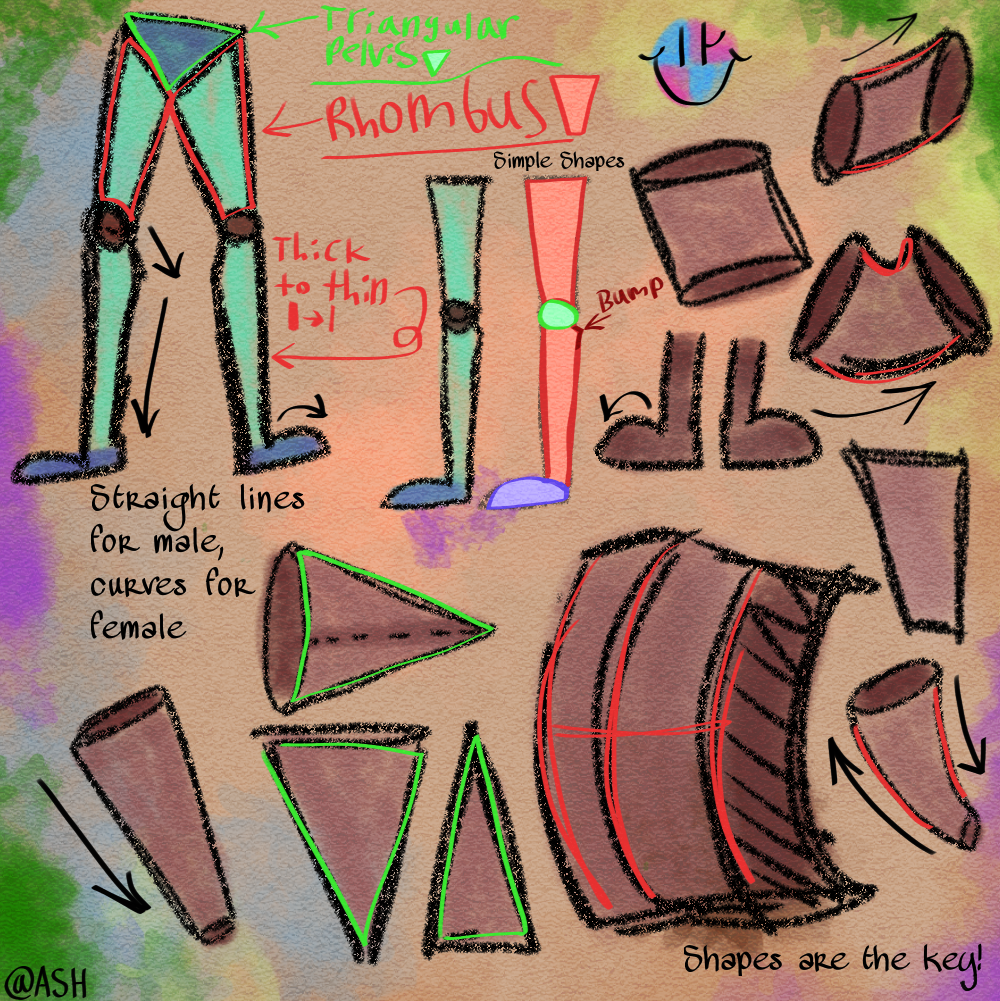 Triangular
Pelvis
Rhombus
Simple Shapes
Thick
to thin
Bump
Straight lines
for male,
curves for
female
Shapes are the key!
@ASH